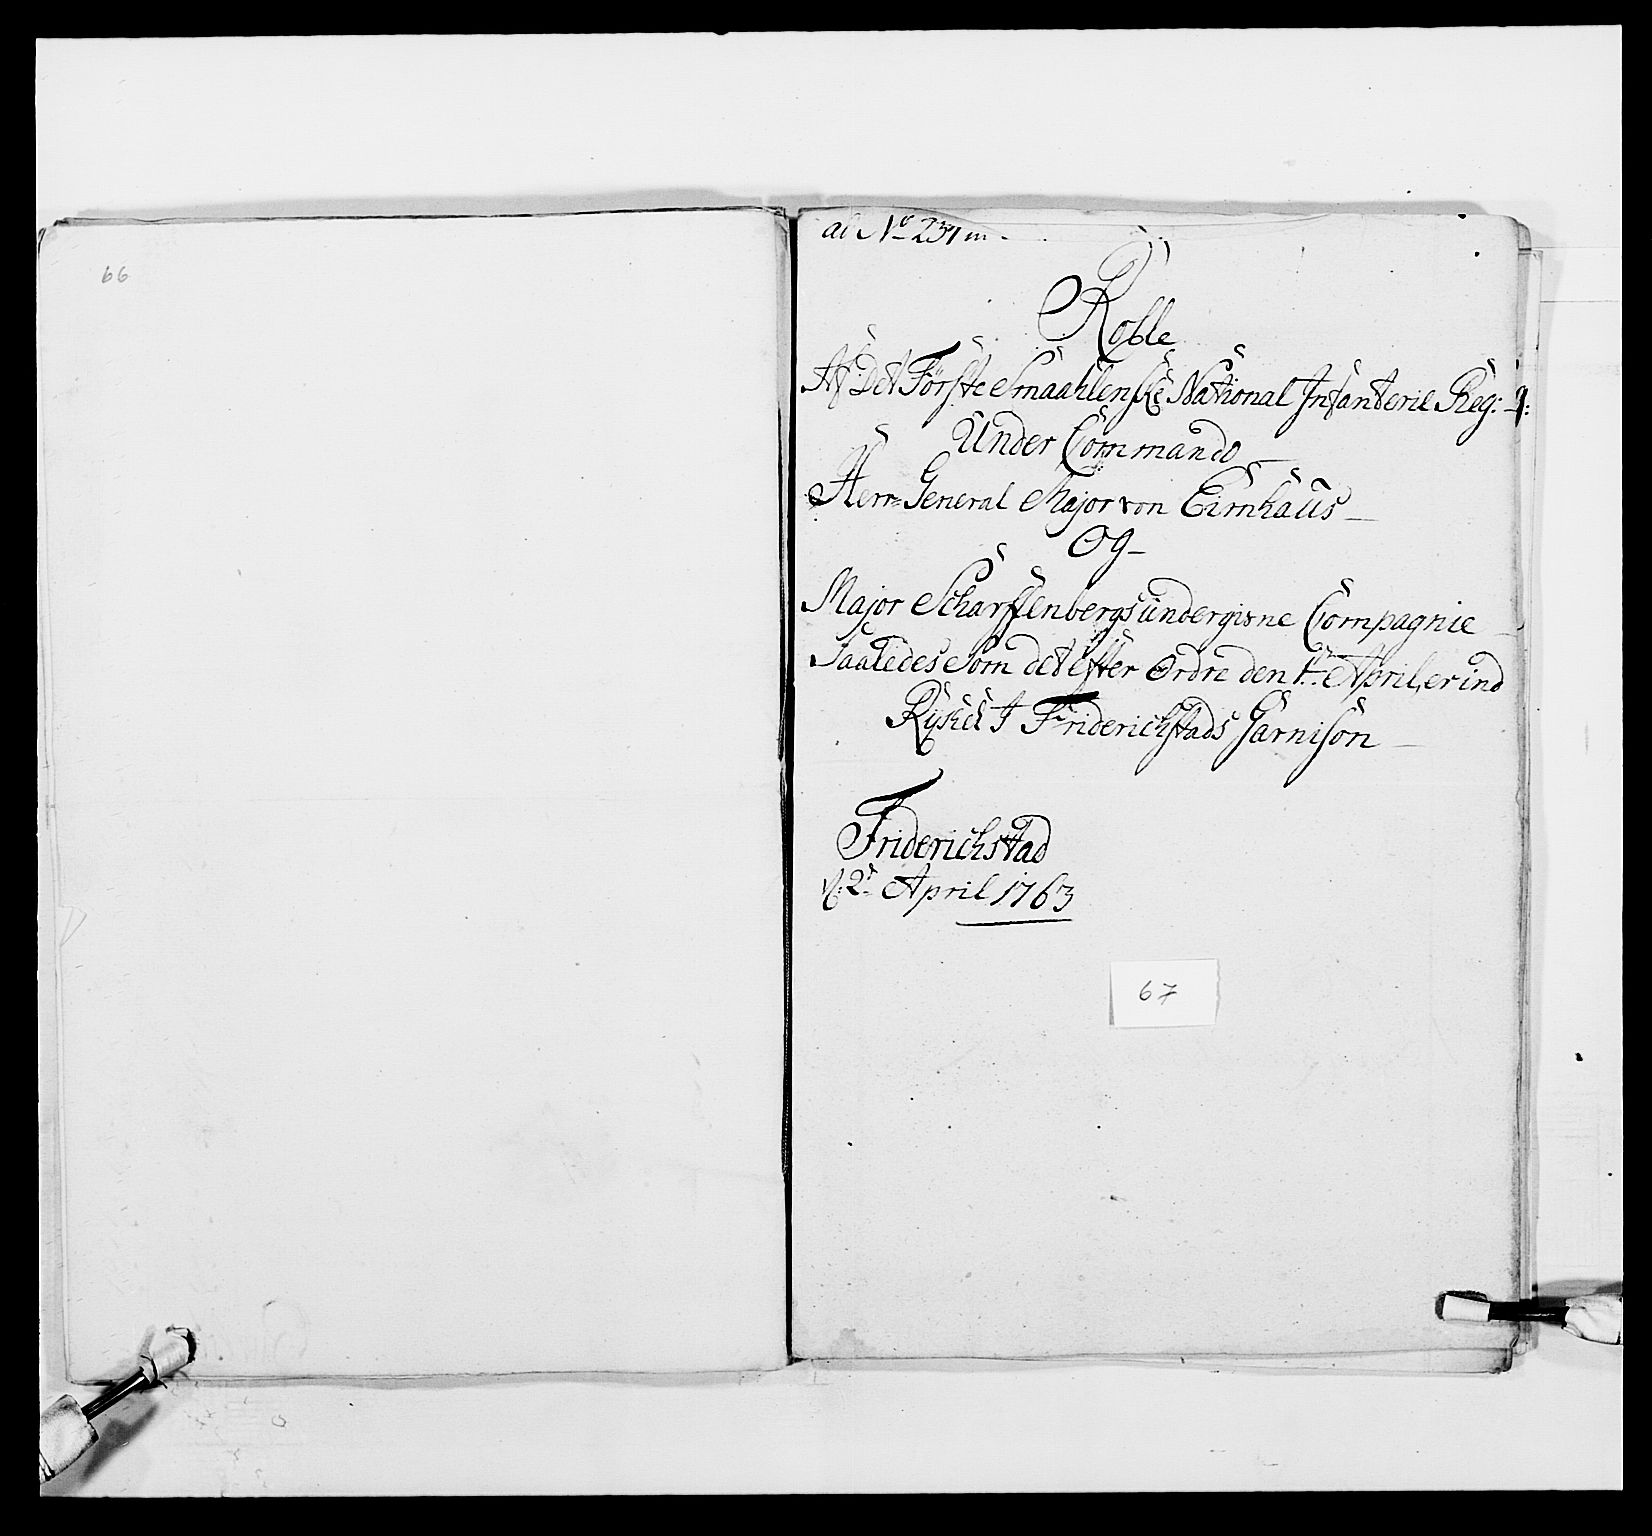 66
ad No 237 m.
Rolle
Af Det Förste Smaahlenske National Infanterie Reg: t:
Under Commando
Herr General Major von Eimhaus
Og
Major Scharffenbergs undergivne Compagnie
Saaledes Som det efter Ordre den 1te April, er ind
Rÿket I Friderichstads Garnison
Friderichstad
d: 2t April 1763
67